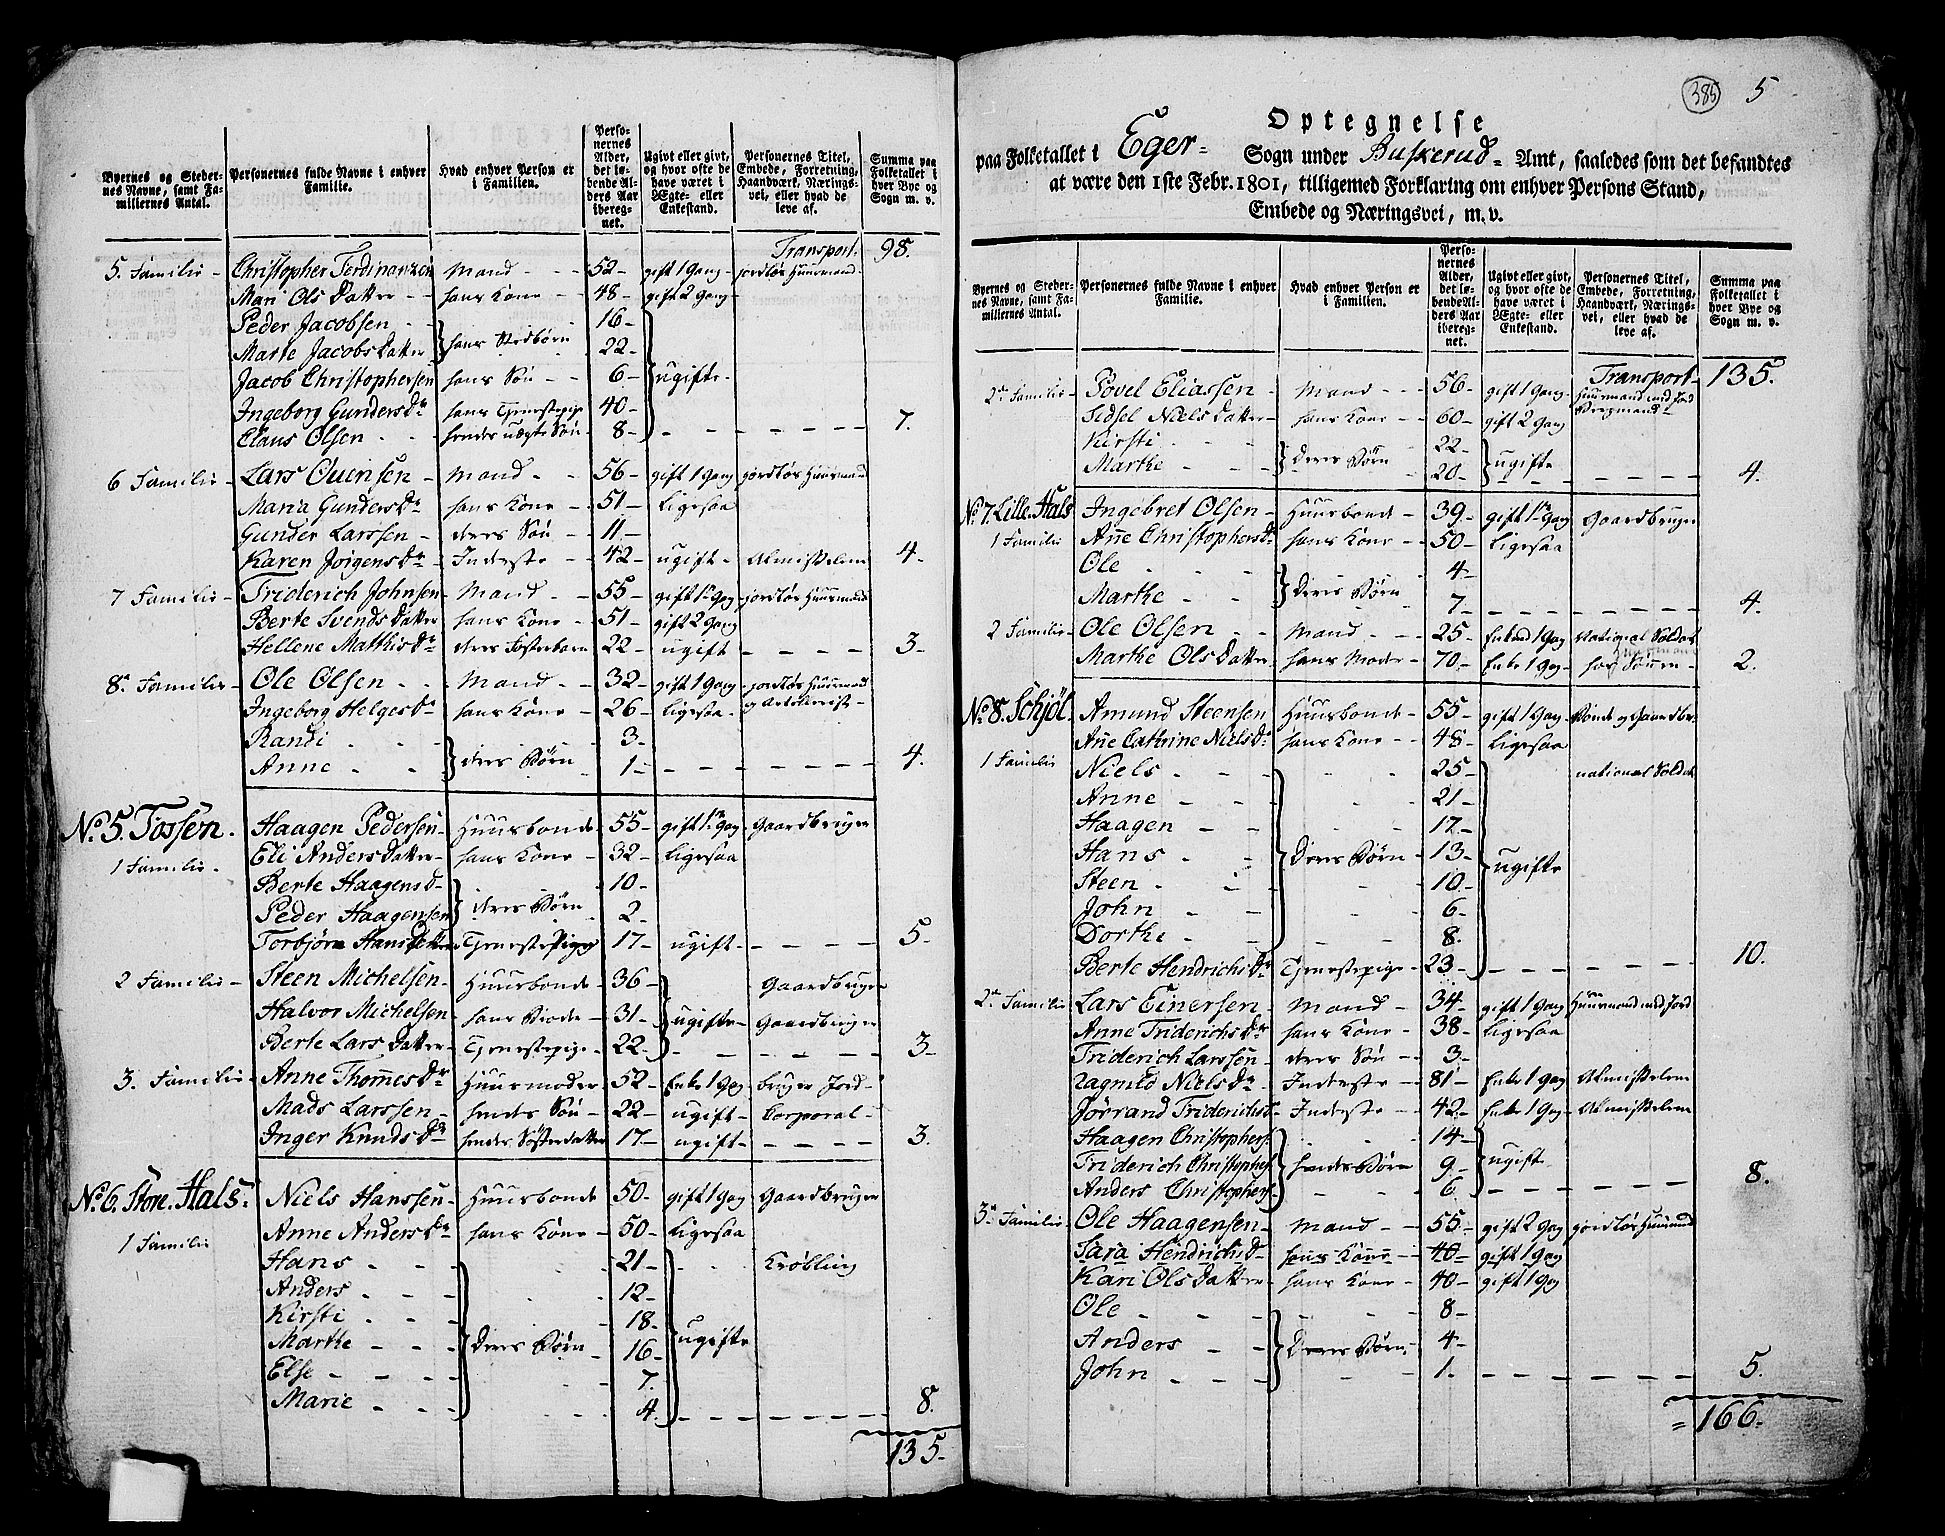 Byernes og Steder-
nes Navne, samt Fa-
miliernes Antal.
Personernes fulde Navne i enhver
Familie.
Hvad enhver Person er
i Familien.
Perso-
nernes
Alder,
det lø-
bende Al-
ders Aar
ibereg-
net.
Ugivt eller givt,
og hvor ofte de
have været i
Ægte- eller
Enkestand.
Personernes Titel,
Embede, Forretning,
Haandværk, Nærings-
vei, eller hvad de
leve af.
Summa paa
Folketallet i
hver Bye og
Sogn m. v.
Transport. 98.
5. Familie - Christopher Ferdinanzen Mand - 52 - gift 1 Gang jordløs Huusmand
Mari Ols Datter - hans Kone - 48 - gift 2 Gang
Peder Jacobsen - hans Stedbørn 16 -
Marte Jacobs Datter 22 -
Jacob Christophersen hans Søn - 6 - ugifte
Ingeborg Gunders Dr hans Tjenestepige 40 -
Claus Olsen - hendes uægte Søn 8 - 7.
6 Familie - Lars Evensen - Mand - 56 - gift 1 Gang jordløs Huusmand
Maria Gunders Dr hans Kone - 51 - Ligesaa
Gunder Larssen - deres Søn - 11 -
Karen Jørgens Dr Inderste - 42 - ugift - Almisselem 4.
7 Familie - Friderich Johnsen Mand - 55 - gift 1 Gang jordløs Huusmand
Berte Svends Datter hans Kone - 51 - gift 2 Gang
Hellene Mathis Dr deres Fosterbarn 22 - ugift 3 -
8. Familie - Ole Olsen - Mand - 32 - gift 1 Gang jordløs Huusmand
Ingeborg Helges Dr hans Kone - 26 - Ligesaa -
Randi - deres Børn 3 -
Anne - 1 - 4.
No. 5. Fossen. Haagen Pedersen - Huusbonde - 55 - gift 1 Gang Gaardbruger
1 Familie - Eli Anders Datter - hans Kone - 32 - Ligesaa
Berte Haagens D - 10 -
Peder Haagensen deres Børn 2 -
Torbjøre Hans Datter Tjenestepige 17 - ugift - 5 -
2 Familie - Steen Michelsen - Huusbonde - 36 - Gaardbruger
Halvor Michelsen hans Broder - 31 - ugifte - Gaardbruger
Berte Lars Datter - Tjenestepige - 22 - 3 -
3. Familie - Anne Thommes Dr Huusmoder - 52 - Enke 1 Gang bruger Jord -
Mads Larssen - hendes Søn - 22 - ugift - Corporal -
Inger Knuds Dr hendes Søsterdatter 17 - ugift - 3.
No. 6. Store Hals. Niels Hanssen - Huusbonde 50 - gift 1 Gang Gaardbruger
1 Familie Anne Anders Dr hans Kone - 50 - Ligesaa
Hans - 21 - Krøbling
Anders - 12 -
Kirsti - 18 -
Marthe - deres Børn 16 - ugifte
Else - 7.
Marie - 4. 8.
135.
385 5
Optegnelse
paa Folketallet i Eger - Sogn under Buskerud - Amt, saaledes som det befandtes
at være den 1ste Febr. 1801, tilligemed Forklaring om enhver Persons Stand,
Embede og Næringsvei, m. v.
Byernes og Steder-
nes Navne, samt Fa-
miliernes Antal.
Personernes fulde Navne i enhver
Familie.
Hvad enhver Person er
i Familien.
Perso-
nernes
Alder,
det lø-
bende Al-
ders Aar
ibereg-
net.
Ugivt eller givt,
og hvor ofte de
have været i
Ægte- eller
Enkestand.
Personernes Titel,
Embede, Forretning,
Haandværk, Nærings-
vei, eller hvad de
leve af.
Summa paa
Folketallet i
hver Bye og
Sogn m. v.
Transport - 135.
2. Familie - Povel Eliassen - Mand - 56 - gift 1 Gang Huusmand med Jord
Sidsel Niels Datter - hans Kone - 60 - gift 2 Gang
Kirsti - deres Børn 22 -
Marthe - 20 - ugifte 4.
No. 7. Lille Hals Ingebret Olsen - Huusbonde - 39 - gift 1 Gang Gaardbruger
1 Familie Anne Christophers D. hans Kone - 50 - Ligesaa
Ole - 4 -
Marthe - deres Børn 7 - 4.
2 Familie - Ole Olsen - Mand - 25 - Enkemd 1 Gang National Soldat
Marthe Ols Datter hans Moder - 70 - Enke 1 Gang - hos Sønnen - 2.
No. 8. Schjøl. Amund Steensen Huusbonde - 55 - gift 1 Gang Bonde og Gaardbr.
1 Familie Anne Cathrine Niels Dr hans Kone - 48 - Ligesaa
Niels - 25 - national Soldat
Anne - 21 -
Haagen - 17 -
Hans - deres Børn - 13 -
Steen - 10 - ugifte
John - 6 -
Dorthe - 8.
Berte Hendrichs Dr Tjenestepige - 23 - 10.
2. Familie Lars Einersen - Mand - 34 - gift 1 Gang Huusmand med Jord
Anne Friderichs Dr hans Kone - 38 - Ligesaa
Friderich Larssen - deres Søn - 3 -
Ragnild Niels Dr Inderste - 81 - Enke 1 Gang Almisselem
Jørrand Friderichs D. Inderste - 42 - Enke 1 Gang Almisselem
Haagen Christophers. 14 -
Friderich Christophers. hendes Børn 9 - ugift
Anders Christophers. 6. 8.
3. Familie - Ole Haagensen - Mand - 55 - gift 2 Gang jordløs Huusmand
Sara Hendrichs D - hans Kone - 40 - gift 1 Gang
Kari Ols Datter - hans Kone - 40 - gift 1 Gang
Ole - 8 -
Anders - deres Børn - 4 -
John - 1. 5.
= 166.